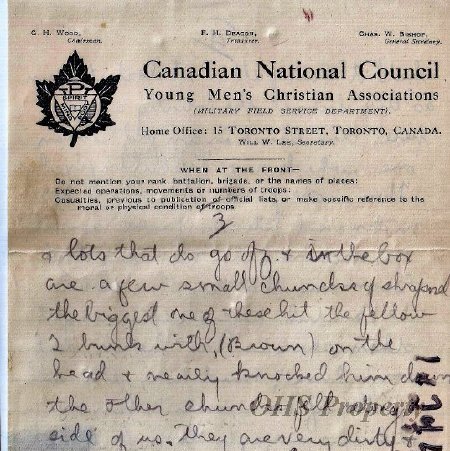 G. H. Wood, Chairman.
F. H. Deacon, Treasurer.
Chas. W. Bishop, General Secretary.
SPIRIT
Canadian National Council
Young Men's Christian Associations
(MILITARY FIELD SERVICE DEPARTMENT).
Home Office: 15 Toronto Street, Toronto, Canada.
Will W. Lee, Secretary.
WHEN AT THE FRONT—
Do not mention your rank, battalion, brigade, or the names of places;
Expected operations, movements or numbers of troops;
Casualties, previous to publication of official lists, or make specific reference to the
moral or physical condition of troops
3
& lots that do go off & in the box
are a few small chunks of shrapnel
the biggest one of these hit the fellow
I bunk with, (Brown) on the
head & nearly knocked him down
the other chunks fell at
side of us. They are very dirty &
OHS Property